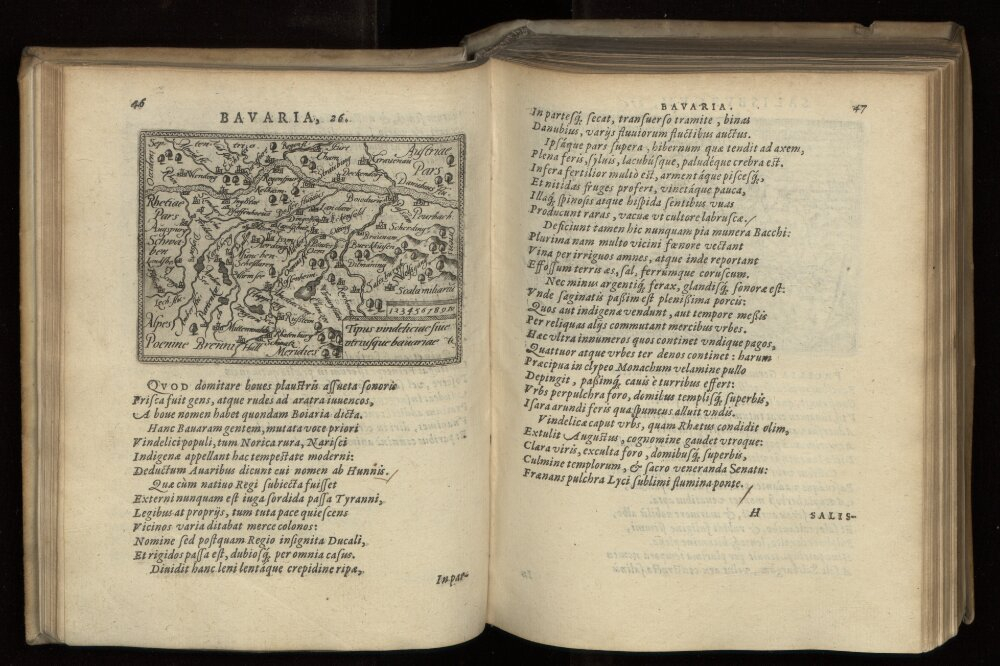 46
BAVARIA, 26.
Septentrio
Austriae
Pars
Rhetiae
Pars
Schwa
ben
Alpes
Poenine Brenni
Meridies
Scala miliariū
1 2 3 4 5 6 7 8 9 10
Tipus vindeliciae siue
vtriusque bauariae
QVOD domitare boues plaustris assueta sonoris
Prisca fuit gens, atque rudes ad aratra iuuencos,
A boue nomen habet quondam Boiaria dicta.
Hanc Bauaram gentem, mutata voce priori
Vindelici populi, tum Norica rura, Narisci
Indigenæ appellant hac tempestate moderni:
Deductum Auaribus dicunt cui nomen ab Hunnis.
Quæ cùm natiuo Regi subiecta fuisset
Externi nunquam est iuga sordida passa Tyranni,
Legibus at proprijs, tum tuta pace quiescens
Vicinos varia ditabat merce colonos:
Nomine sed postquam Regio insignita Ducali,
Et rigidos passa est, dubiosq́, per omnia casus.
Diuidit hanc leni lentáque crepidine ripæ,
In par-
BAVARIA.
47
In partesq́, secat, transuerso tramite, binas
Danubius, varijs fluuiorum fluctibus auctus.
Ipsáque pars supera, hibernum quæ tendit ad axem,
Plena feris, syluis, lacubúsque, paludéque crebra est.
Infera fertilior multò est, armentáque piscesq́,
Et nitidas fruges profert, vinetáque pauca,
Illaq́, spinosis atque hispida sentibus vuas
Producunt raras, vacuæ vt cultore labruscæ.
Deficiunt tamen hic nunquam pia munera Bacchi:
Plurima nam multo vicini fœnore vectant
Vina per irriguos amnes, atque inde reportant
Effossum terris æs, sal, ferrumque coruscum.
Nec minus argentiq́, ferax, glandisq́, sonoræ est:
Vnde saginatis passim est plenissima porcis:
Quos aut indigenæ vendunt, aut tempore messis
Per reliquas alijs commutant mercibus vrbes.
Hæc vltra innumeros quos continet vndique pagos,
Quattuor atque vrbes ter denos continet: harum
Præcipua in clypeo Monachum velamine pullo
Depingit, passimq́, cauis è turribus effert:
Vrbs perpulchra foro, domibus templisq́, superbis,
Isara arundi feris quã spumeus alluit vndis.
Vindelicæ caput vrbs, quam Rhætus condidit olim,
Extulit Augustus, cognomine gaudet vtroque:
Clara viris, exculta foro, domibusq́, superbis,
Culmine templorum, & sacro veneranda Senatu:
Frænans pulchra Lyci sublimi flumina ponte.
H
SALIS-